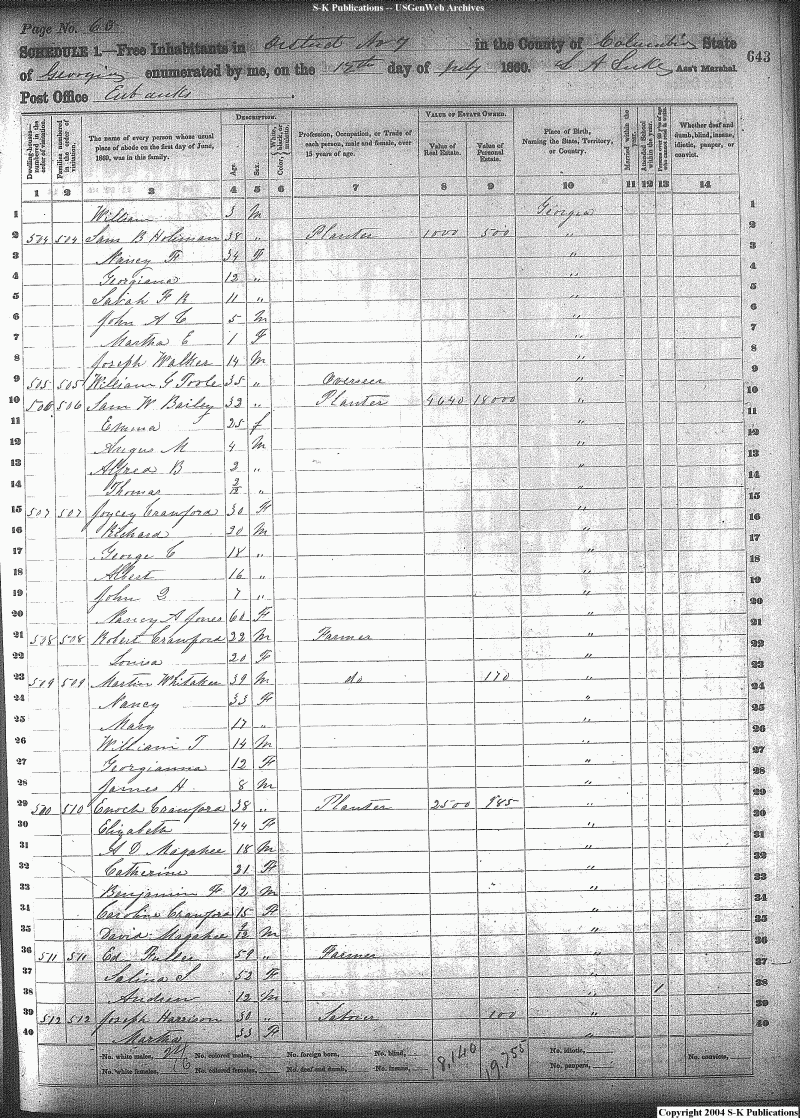 S-K Publications -- USGenWeb Archives
Page No. 60
SCHEDULE 1.—Free Inhabitants in District No 7 in the County of Columbia State
643
of Georgia enumerated by me, on the 12th day of July 1860. S A Luke Ass't Marshal.
Post Office Eubanks
Dwelling-houses—numbered in the order of visitation.
Families numbered in the order of visitation.
The name of every person whose usual place of abode on the first day of June, 1860, was in this family.
DESCRIPTION.
Age.
Sex.
Color, White, black, or mulatto.
Profession, Occupation, or Trade of each person, male and female, over 15 years of age.
VALUE OF ESTATE OWNED.
Value of Real Estate.
Value of Personal Estate.
Place of Birth, Naming the State, Territory, or Country.
Married within the year.
Attended School within the year.
Whether deaf and dumb, blind, insane, idiotic, pauper, or convict.
1 2 3 4 5 6 7 8 9 10 11 12 13 14
1 William 3 M Georgia 1
2 504 504 Sam B Holiman 38 " Planter 1000 500 " 2
3 Nancy F 34 F " 3
4 Georgiana 12 " " 4
5 Sarah F R 11 " " 5
6 John A C 5 M " 6
7 Martha E 1 F " 7
8 Joseph Walker 14 M " 8
9 505 505 William G Toole 35 " Overseer " 9
10 506 506 Sam W Bailey 32 " Planter 4640 18000 " 10
11 Emma 25 f " 11
12 Angus M 4 M " 12
13 Alfred B 2 " " 13
14 Thomas 2/12 " " 14
15 507 507 Joycey Crawford 30 F " 15
16 Richard 20 M " 16
17 George C 18 " " 17
18 Albert 16 " " 18
19 John Q 7 " " 19
20 Nancy A Jones 60 F " 20
21 508 508 Robert Crawford 22 M Farmer " 21
22 Louisa 20 F " 22
23 509 509 Martin Whitaker 39 M do 170 " 23
24 Nancy 33 F " 24
25 Mary 17 " " 25
26 William T 14 M " 26
27 Georgianna 12 F " 27
28 James H 8 M " 28
29 500 510 Enoch Crawford 38 " Planter 2500 985 " 29
30 Elizabeth 44 F " 30
31 Magahee 18 M " 31
32 Catherine 21 F " 32
33 Benjamin F 12 M " 33
34 Caroline Crawford 15 F " 34
35 David Magahee M " 35
36 511 511 Ed. Fuller 59 " Farmer " 36
37 Salina S 52 F " 37
38 Andrew 12 M " 1 38
39 512 512 Joseph Harrison 30 " Labour 100 " 39
40 Martha 33 F " 40
No. white males, 24 No. colored males, No. foreign born, No. blind, 8,140 19,755 No. idiotic,
No. white females, 16 No. colored females, No. deaf and dumb, No. insane, No. paupers, No. convicts,
Copyright 2004 S-K Publications